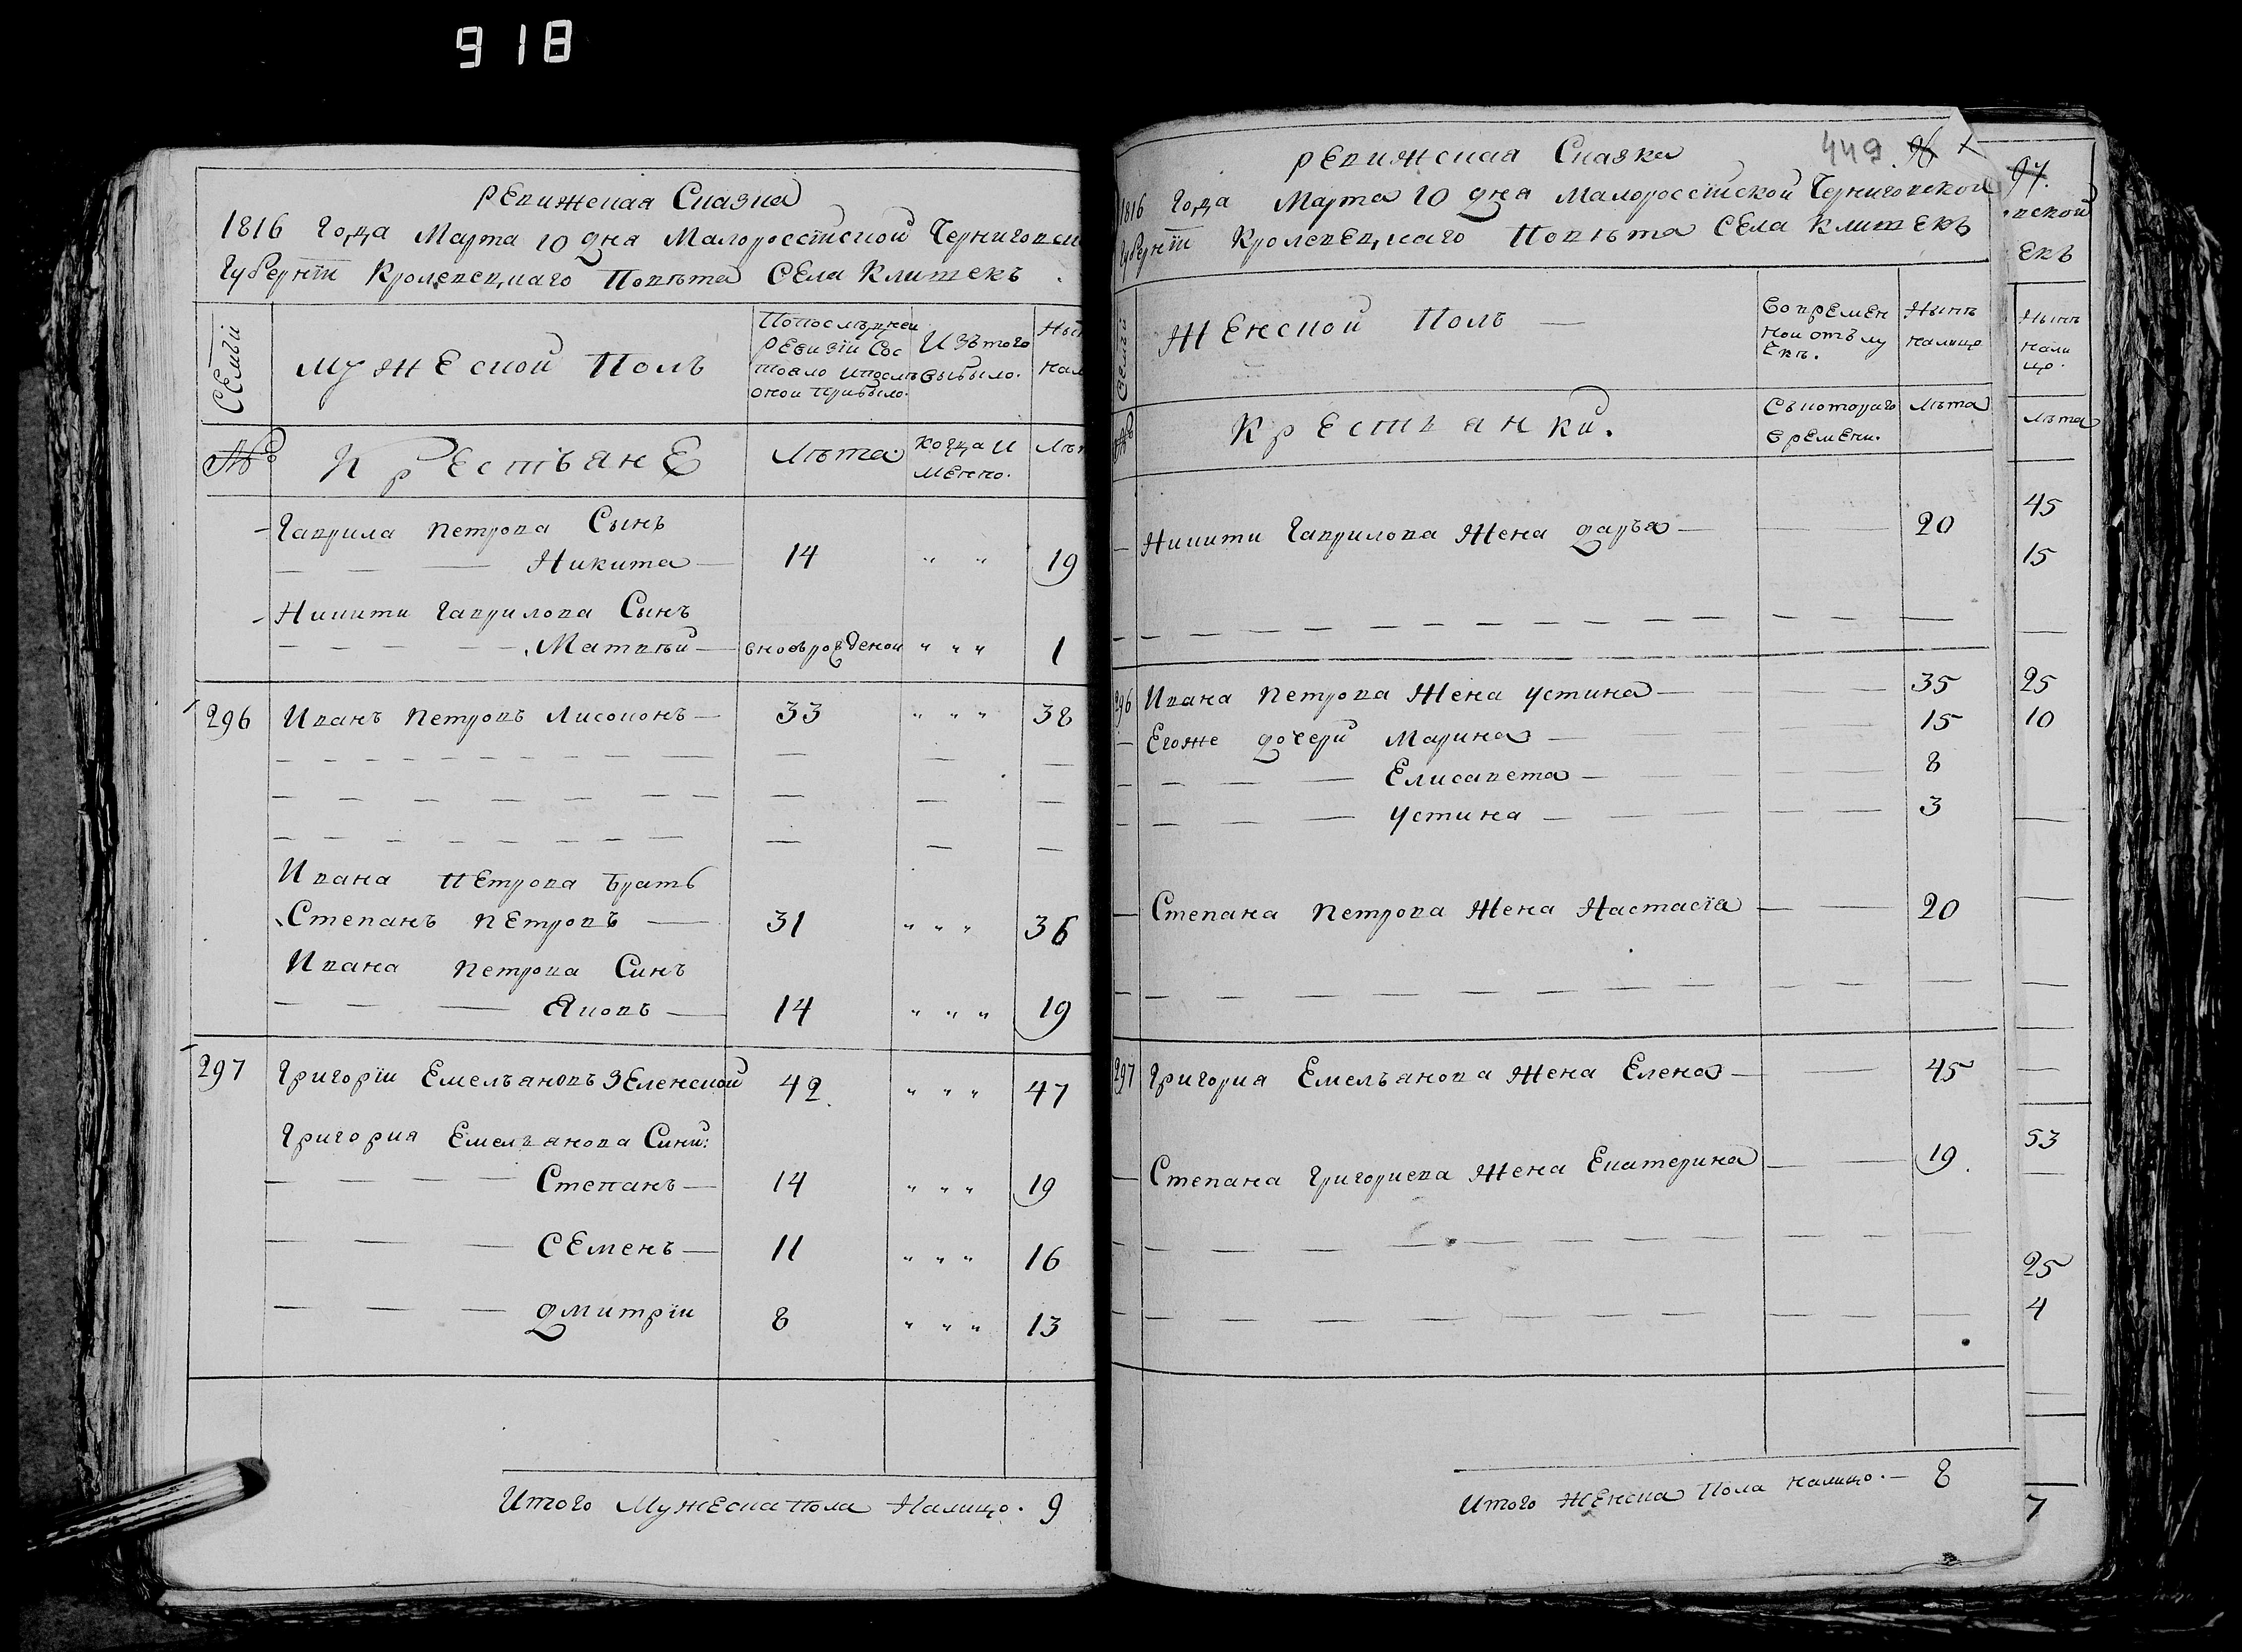 918
Ревижская Сказка
1816 Года Марта 10 дня Малоросстиской Чернигопск
Губернїи Кролевецкаго Повѣта Села Клишекъ
Семьи
Мужеской Полъ
Попослѣдней
Ревизїи Сос
тояло ипослѣ
оной прибыло.
Изътого
выбыло.
№
Крестьяне
Лѣта
когда и
менно.
Гаврила Петрова Сынъ
Никита 14 " " 19
Никити Гаврилова Сынъ
Матвѣй вновьрожденой " " " 1
296 Иванъ Петровъ Лисоконь 33 " " " 38
Ивана Петрова Братъ
Степанъ Петровъ 31 " " " 36
Ивана Петрова Синъ
Яковъ 14 " " " 19
297 Григорїи Емельяновъ Зеленской 42 " " " 47
Григория Емельянова Сини:
Степанъ 14 " " " 19
Семенъ 11 " " " 16
Дмитрїи 8 " " " 13
Итого Мужеска пола Налицо. 9
Ревижская Сказка
449. 96
1816 Года Марта 10 дня Малоросстиской Черниговской
Губернїи Кролевецкаго Повѣта Села Клишекъ
Семьи
Женской Полъ
Вовремен
ной отълу
екъ.
Нынѣ
налицо
№
Крестьянки.
Съкотораго
времени.
Лѣта
Никити Гаврилова Жена Дарья 20
296 Ивана Петрова Жена Устина 35
Егоже дочери Марина 15
Елисавета 8
Устина 3
Степана Петрова Жена Настасїа 20
297 Григория Емельянова Жена Елена 45
Степана Григориева Жена Екатерина 19
Итого Женска Пола налицо. 8
97.
вской
екъ
Нынѣ
нали
цо.
Лѣта
45
15
25
10
53
25
4
7